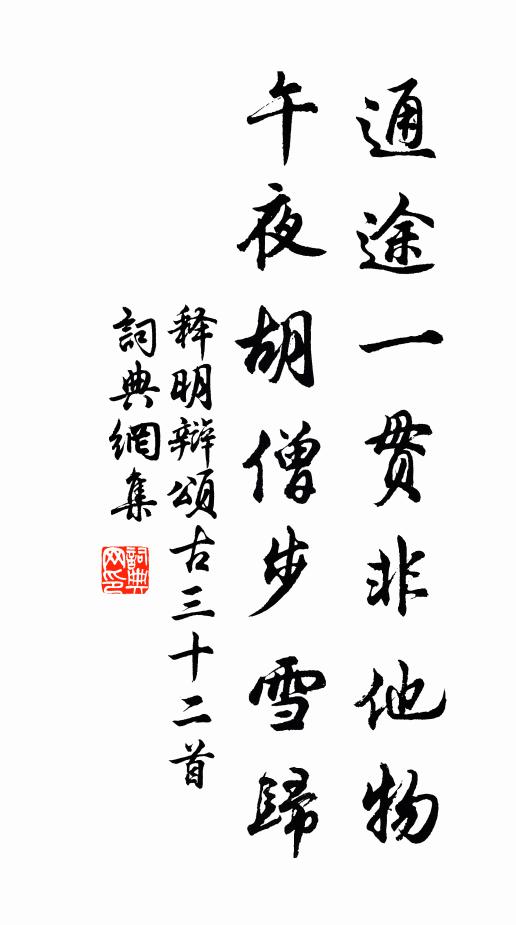 通途一贯非他物
午夜胡僧步雪歸
释明辯頌古三十二首
詞典網集
詞典网印